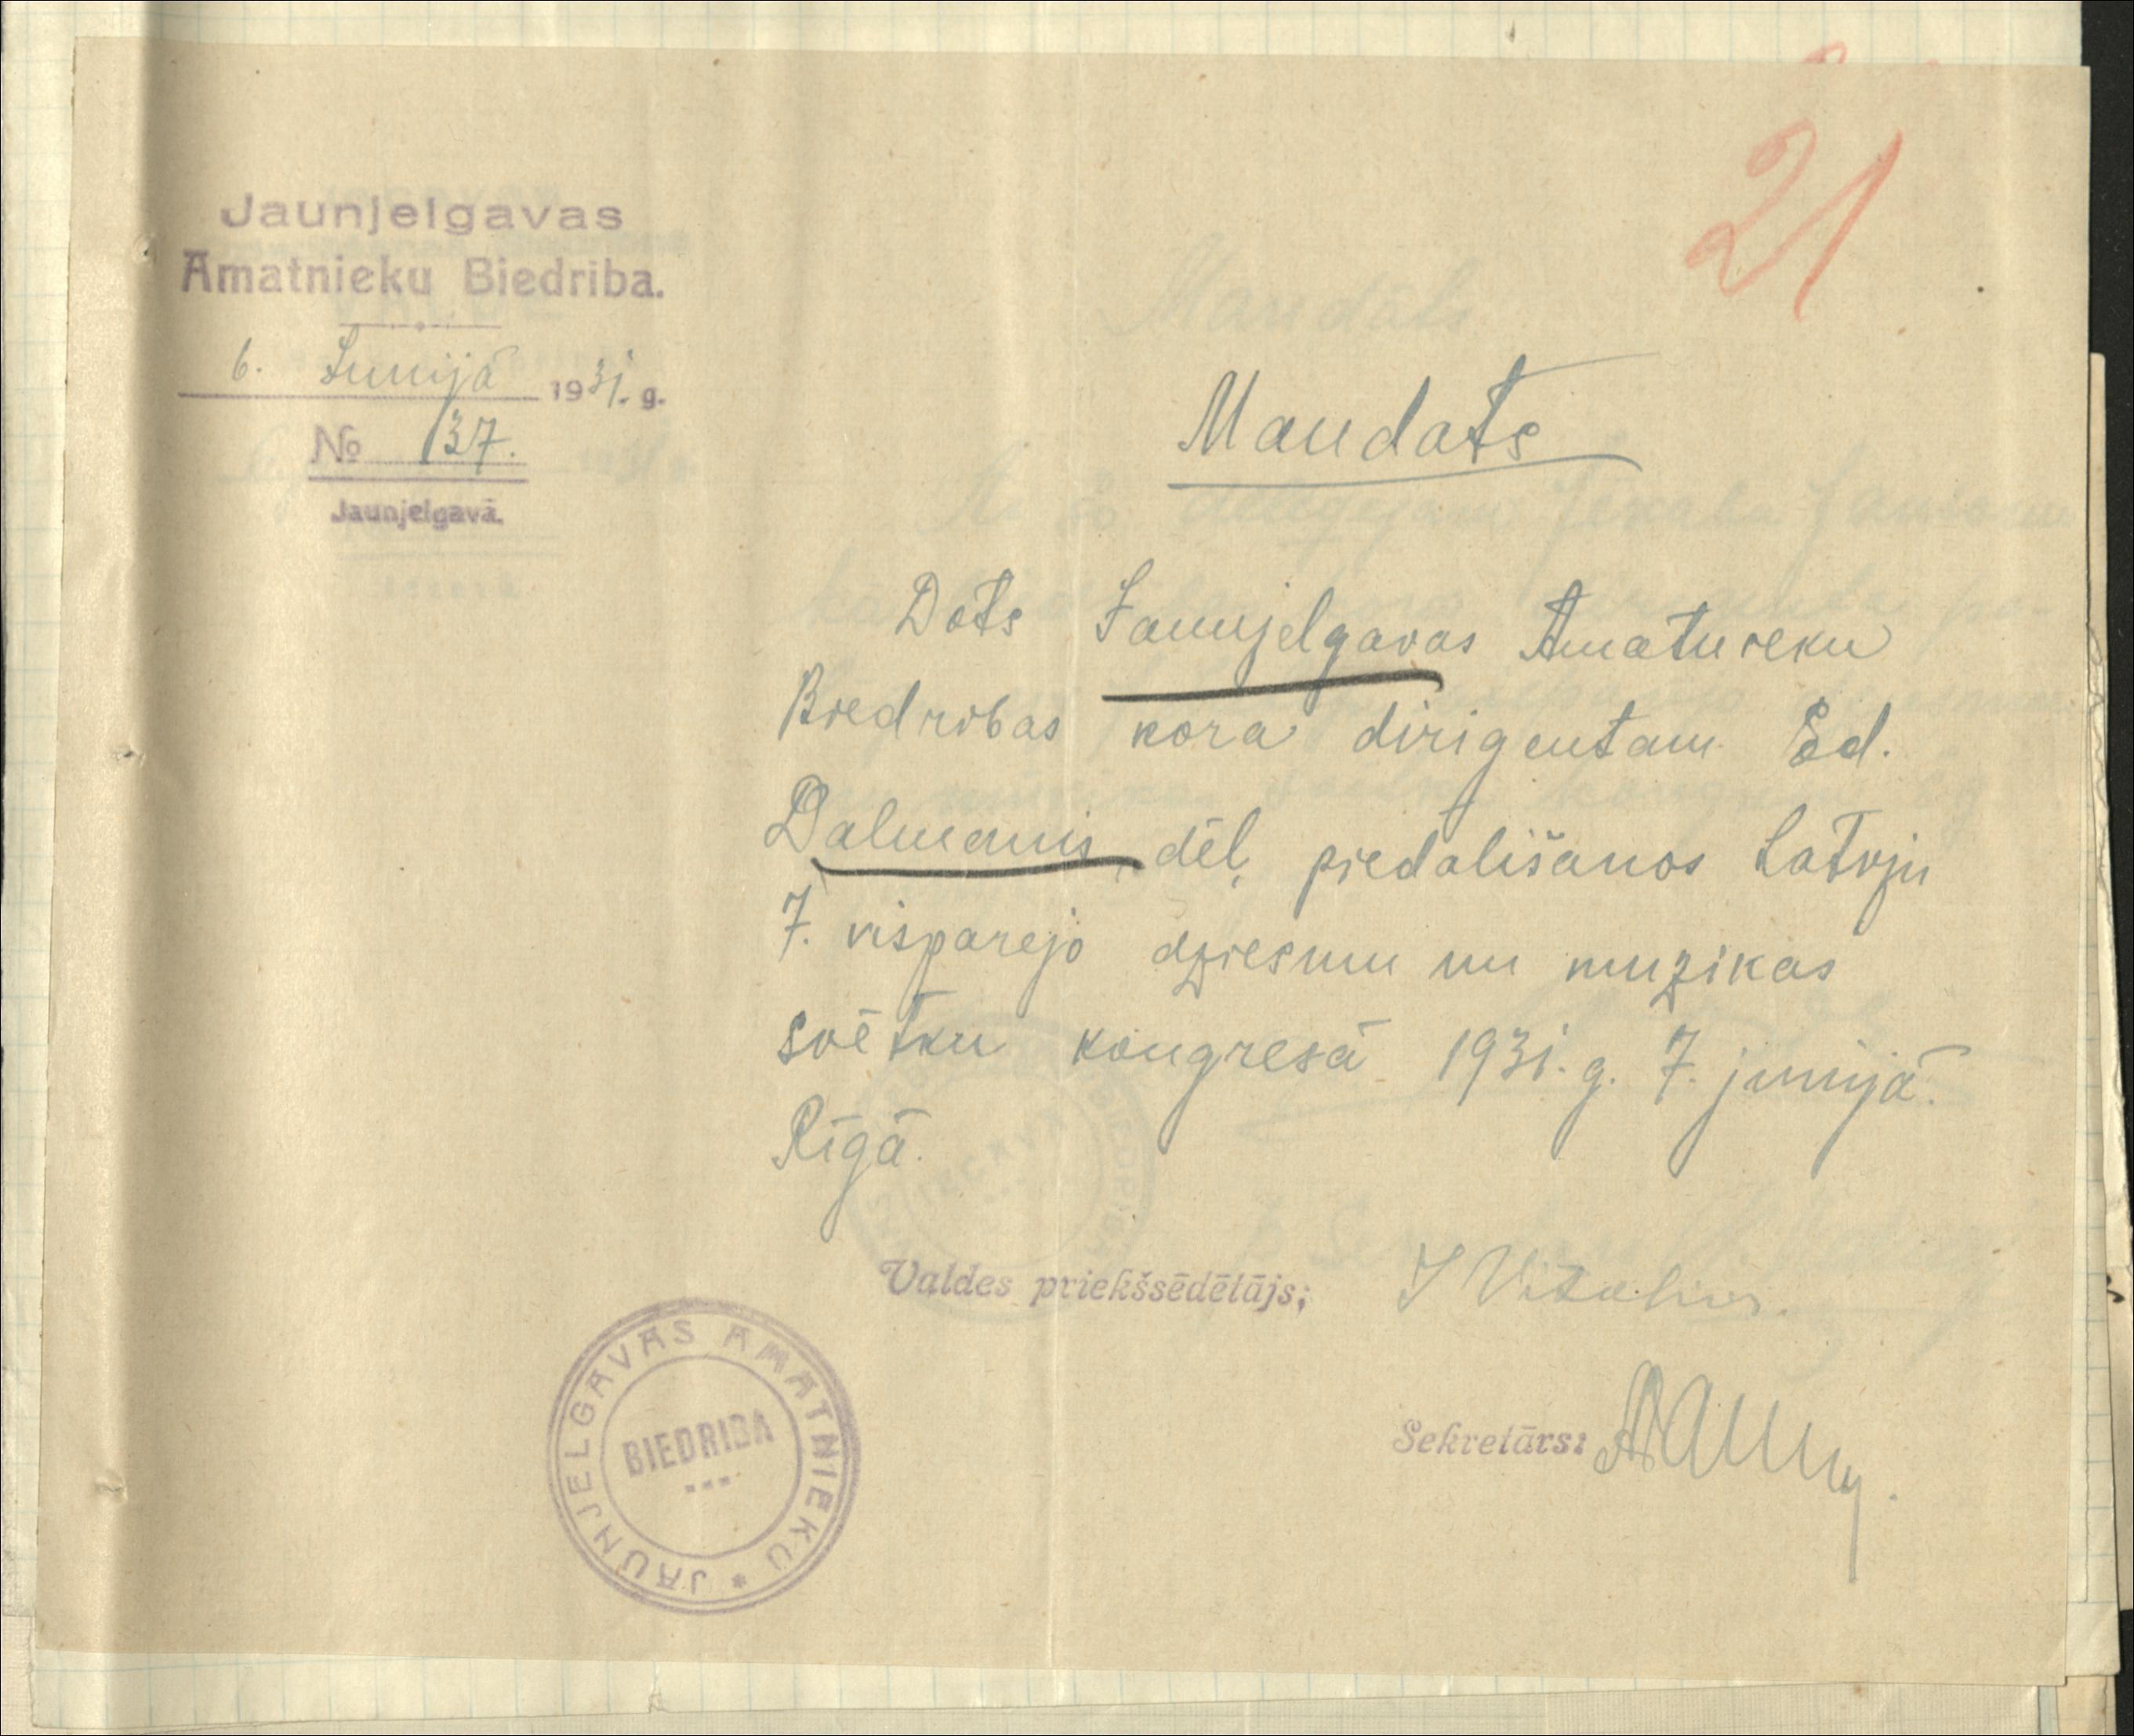 21
Jaunjelgavas
Amatnieku Biedrība.
6. Junijā 1931. g.
№ 137.
Jaunjelgavā.
Mandats
Dots Jaunjelgavas Amatnieku
Biedribas kora dirigentam Ed.
Dalmanis dēļ piedališanos Latvju
7. visparejo dziesmu un muzikas
svētku kongresā 1931. g. 7. junijā.
Rīgā.
Valdes priekšsēdētājs;
Sekretārs:
JAUNJELGAVAS AMATNIEKU *
BIEDRIBA